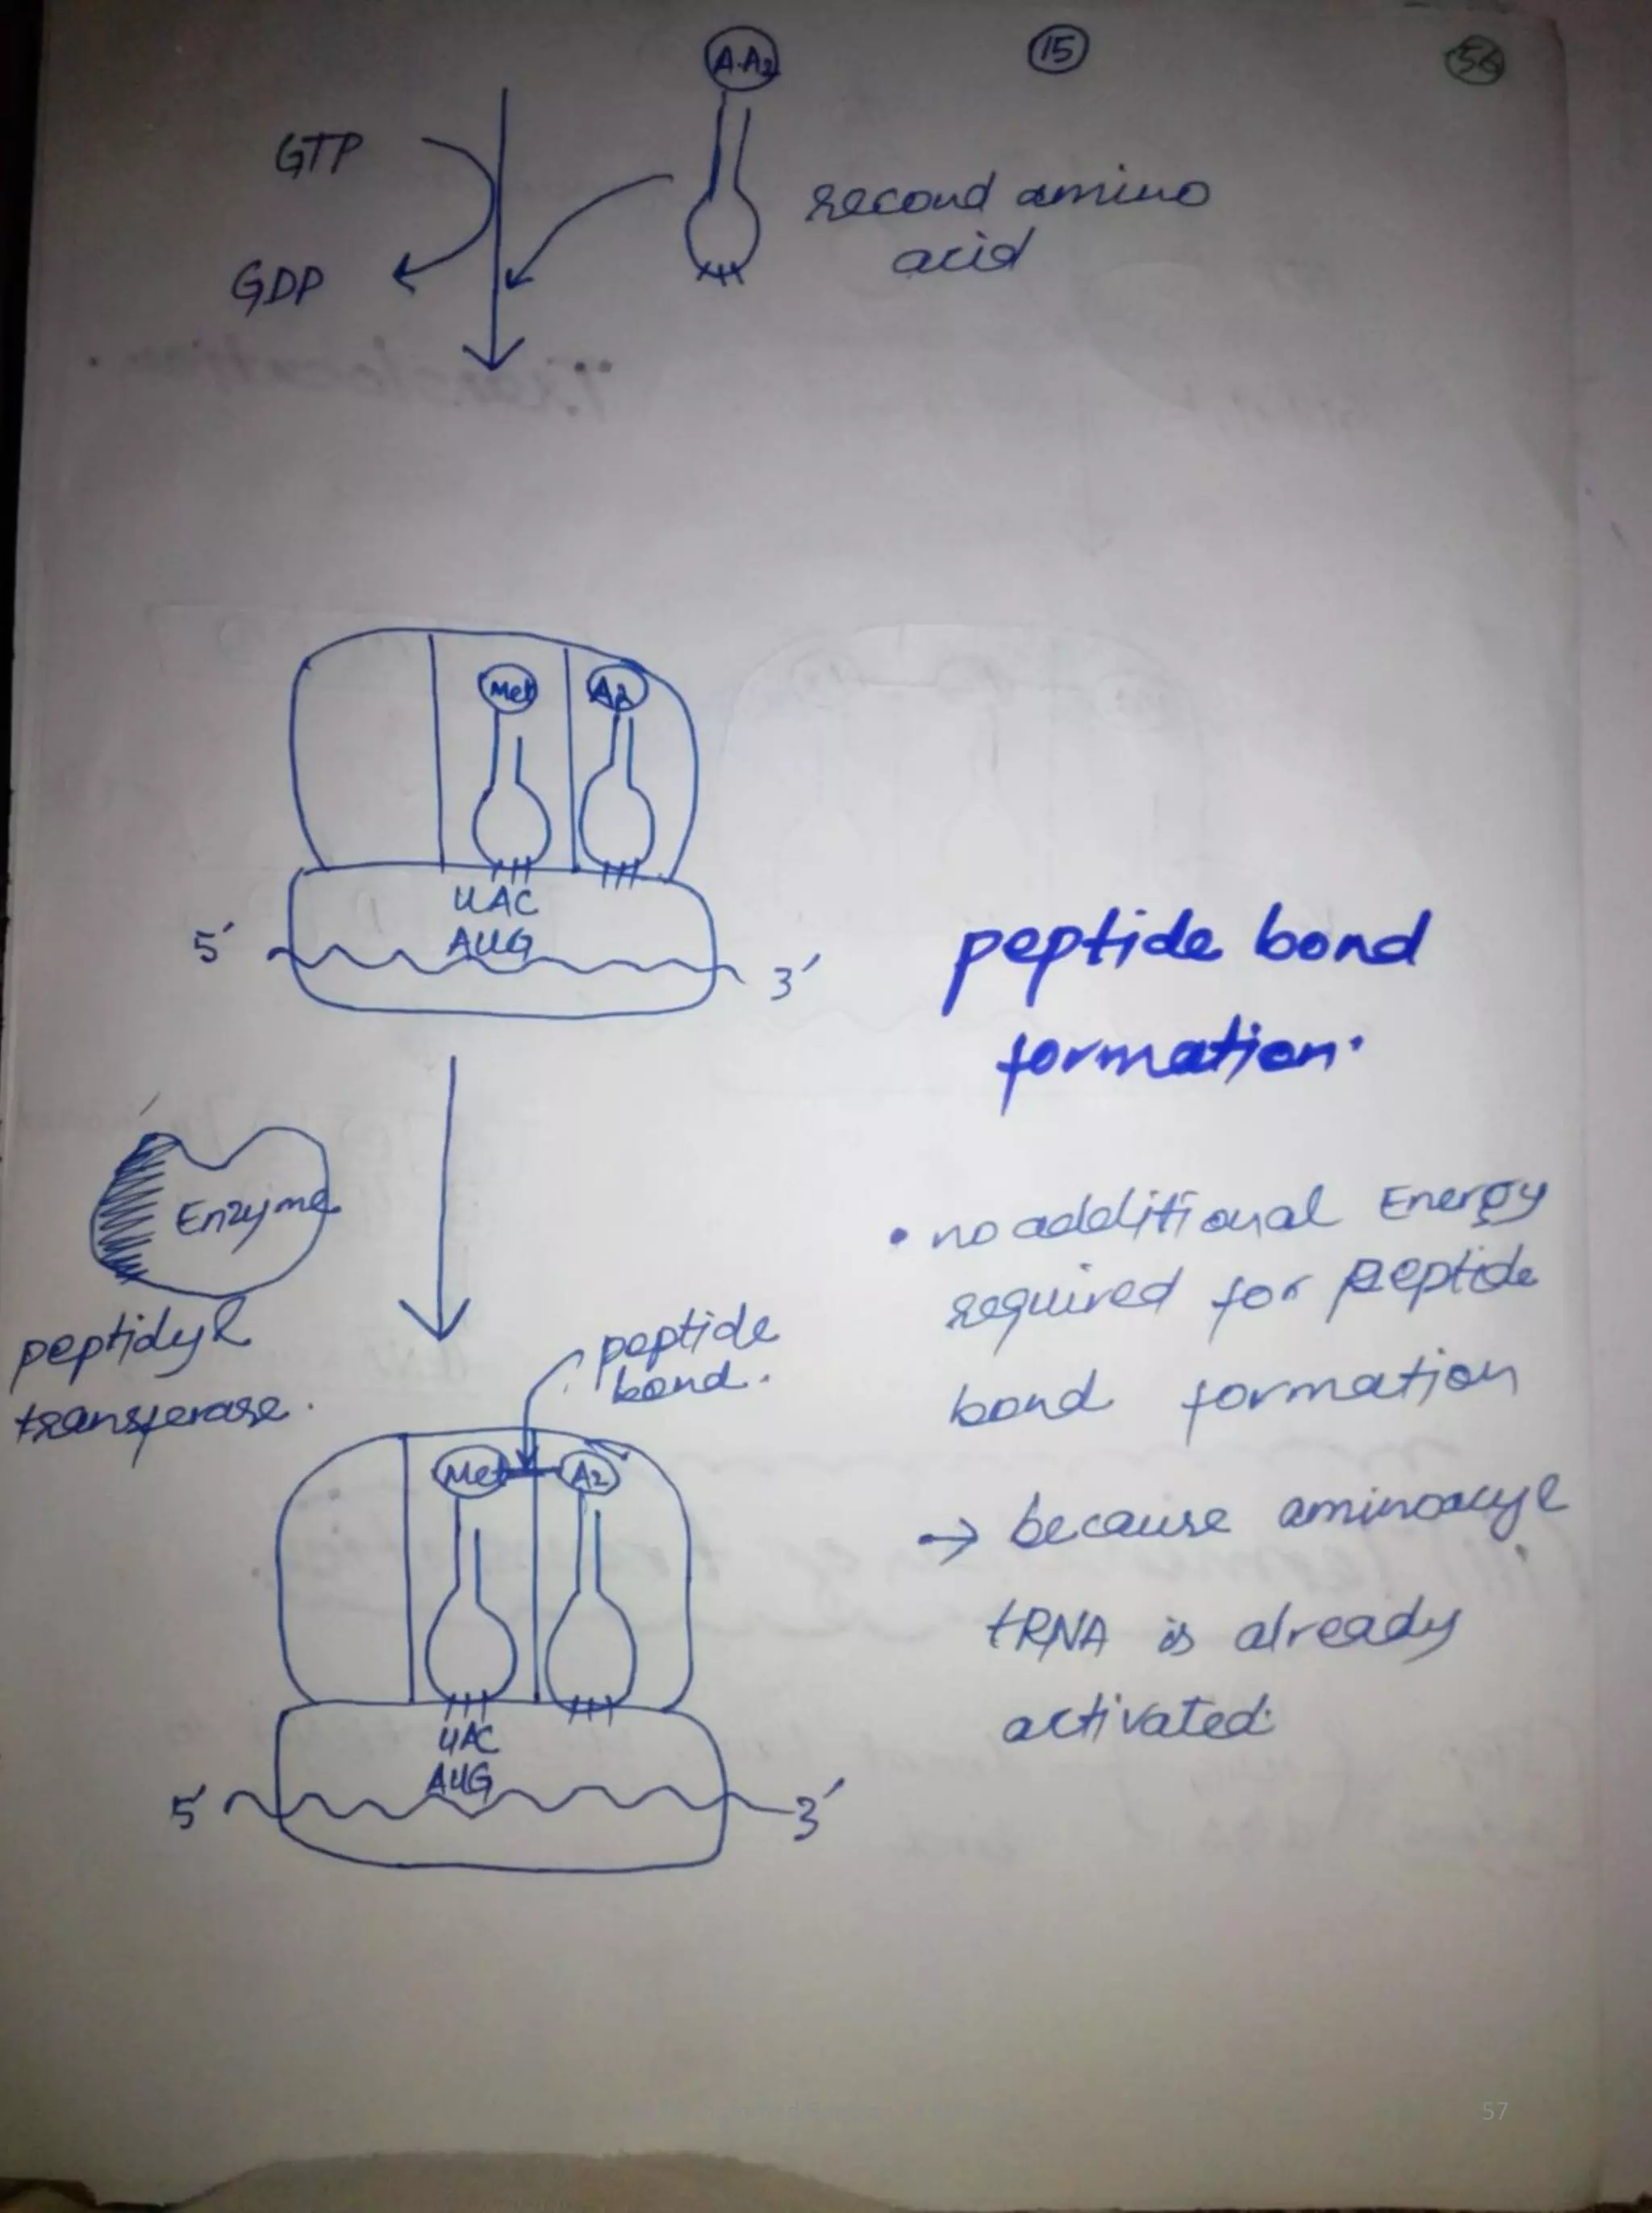 A.A2
15
56
GTP
GDP
second amino
acid
Met
A2
UAC
AUG
5′
3′
peptide bond
formation.
Enzyme
peptidyl
transferase.
• no additional Energy
required for peptide
bond formation
→ because aminoacyl
tRNA is already
activated.
peptide
bond.
Met
A2
UAC
AUG
5′
3′
57